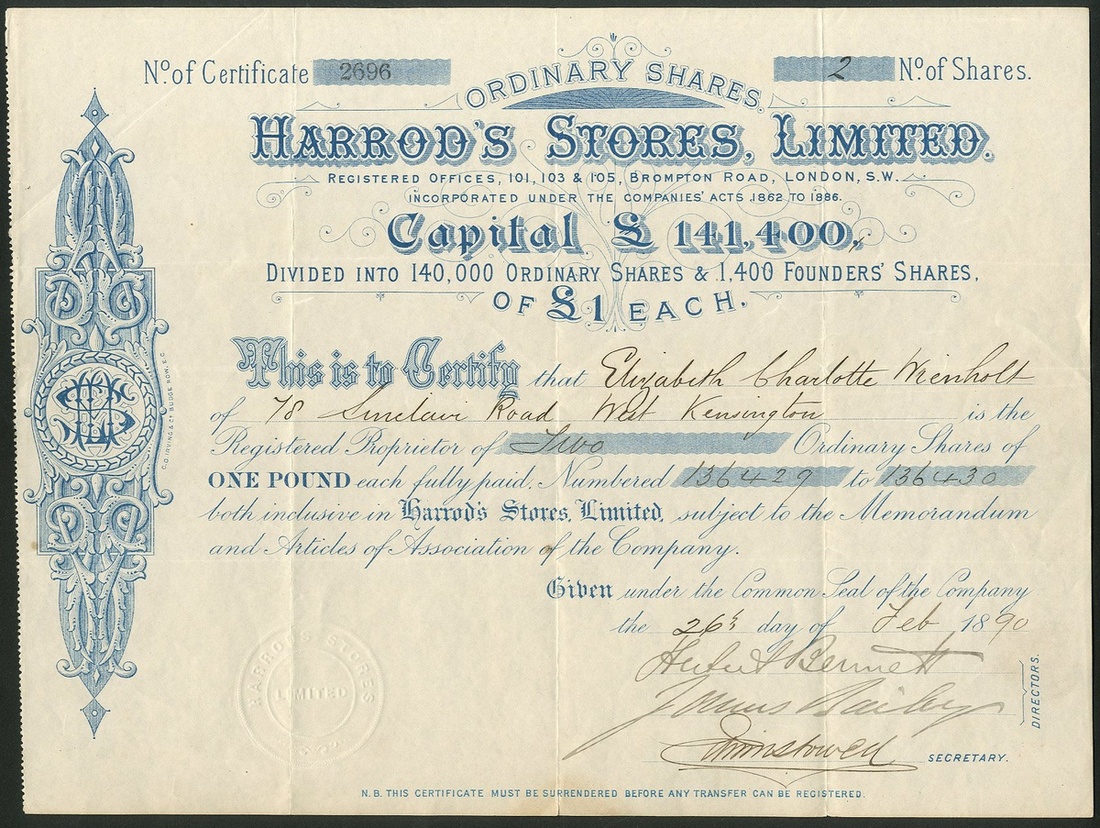 No. of Certificate 2696
2 No. of Shares.
ORDINARY SHARES.
HARROD'S STORES, LIMITED.
REGISTERED OFFICES, 101, 103 & 105, BROMPTON ROAD, LONDON, S.W.
INCORPORATED UNDER THE COMPANIES' ACTS 1862 TO 1886.
Capital £141,400,
DIVIDED INTO 140,000 ORDINARY SHARES & 1,400 FOUNDERS' SHARES,
OF £1 EACH.
This is to Certify that Elizabeth Charlotte Wienholt
of 78 Sinclair Road West Kensington is the
Registered Proprietor of Two Ordinary Shares of
ONE POUND each fully paid, Numbered 136429 to 136430
both inclusive in Harrod's Stores, Limited, subject to the Memorandum
and Articles of Association of the Company.
Given under the Common Seal of the Company
the 26th day of Feb 1890
Herbert Bennett
James Bailey
DIRECTORS.
SECRETARY.
HARROD'S STORES
LIMITED
C.D. IRVING & Co. BUDGE ROW, E.C.
N.B. THIS CERTIFICATE MUST BE SURRENDERED BEFORE ANY TRANSFER CAN BE REGISTERED.